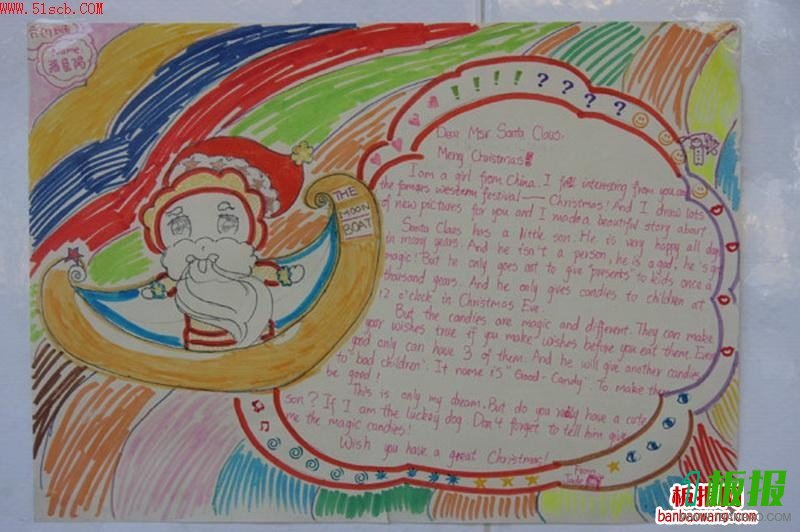 www.51scb.com
name
Dear Msr Santa Claus,
Merry Christmas!
I am a girl from China. I fell interesting from you and
the famors western festival —— Christmas! And I draw lots
of new pictures for you and I made a beautiful story about
Santa Claus has a little son. He is very happy all day
in many years. And he isn't a person, he is a god, he's
magic! But he only goes out to give "presents" to kids once a
thousand years. And he only gives candies to children at
12 o'clock in Christmas Eve.
But the candies are magic and different. They can make
your wishes true if you make wishes before you eat them. Every
good only can have 3 of them. And he will give another candies
to "bad children". It name is "Good-Candy" To make them
be good!
This is only my dream. But do you really have a cute
son? If I am the luckey dog. Don't forget to tell him give
me the magic candies!
Wish you have a great Christmas!
From
Jade
THE
MOON
BOAT
板报网
banbaowang.com
板报